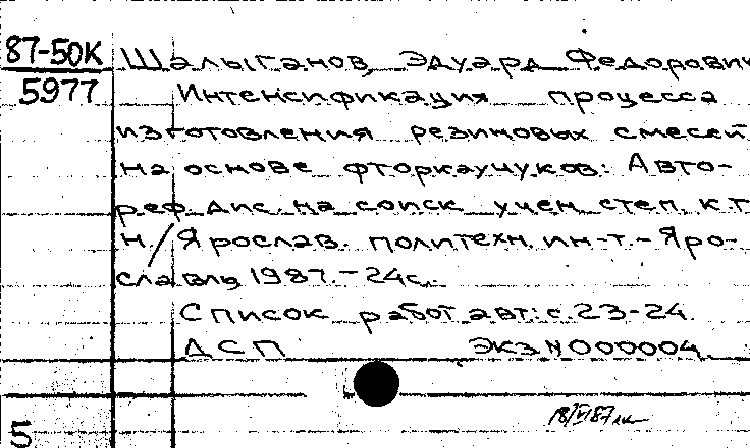 87-50К
5977
Шалыганов, Эдуард Федорович
Интенсификация процесса
изготовления резиновых смесей
на основе фторкаучуков: Авто-
реф. дис. на соиск. учен. степ. к.т.
н. / Ярослав. политехн. ин-т. - Яро-
славль, 1987. - 24с.
Список работ авт.: с. 23-24.
ДСП Экз N 000004.
18/VI 87
5